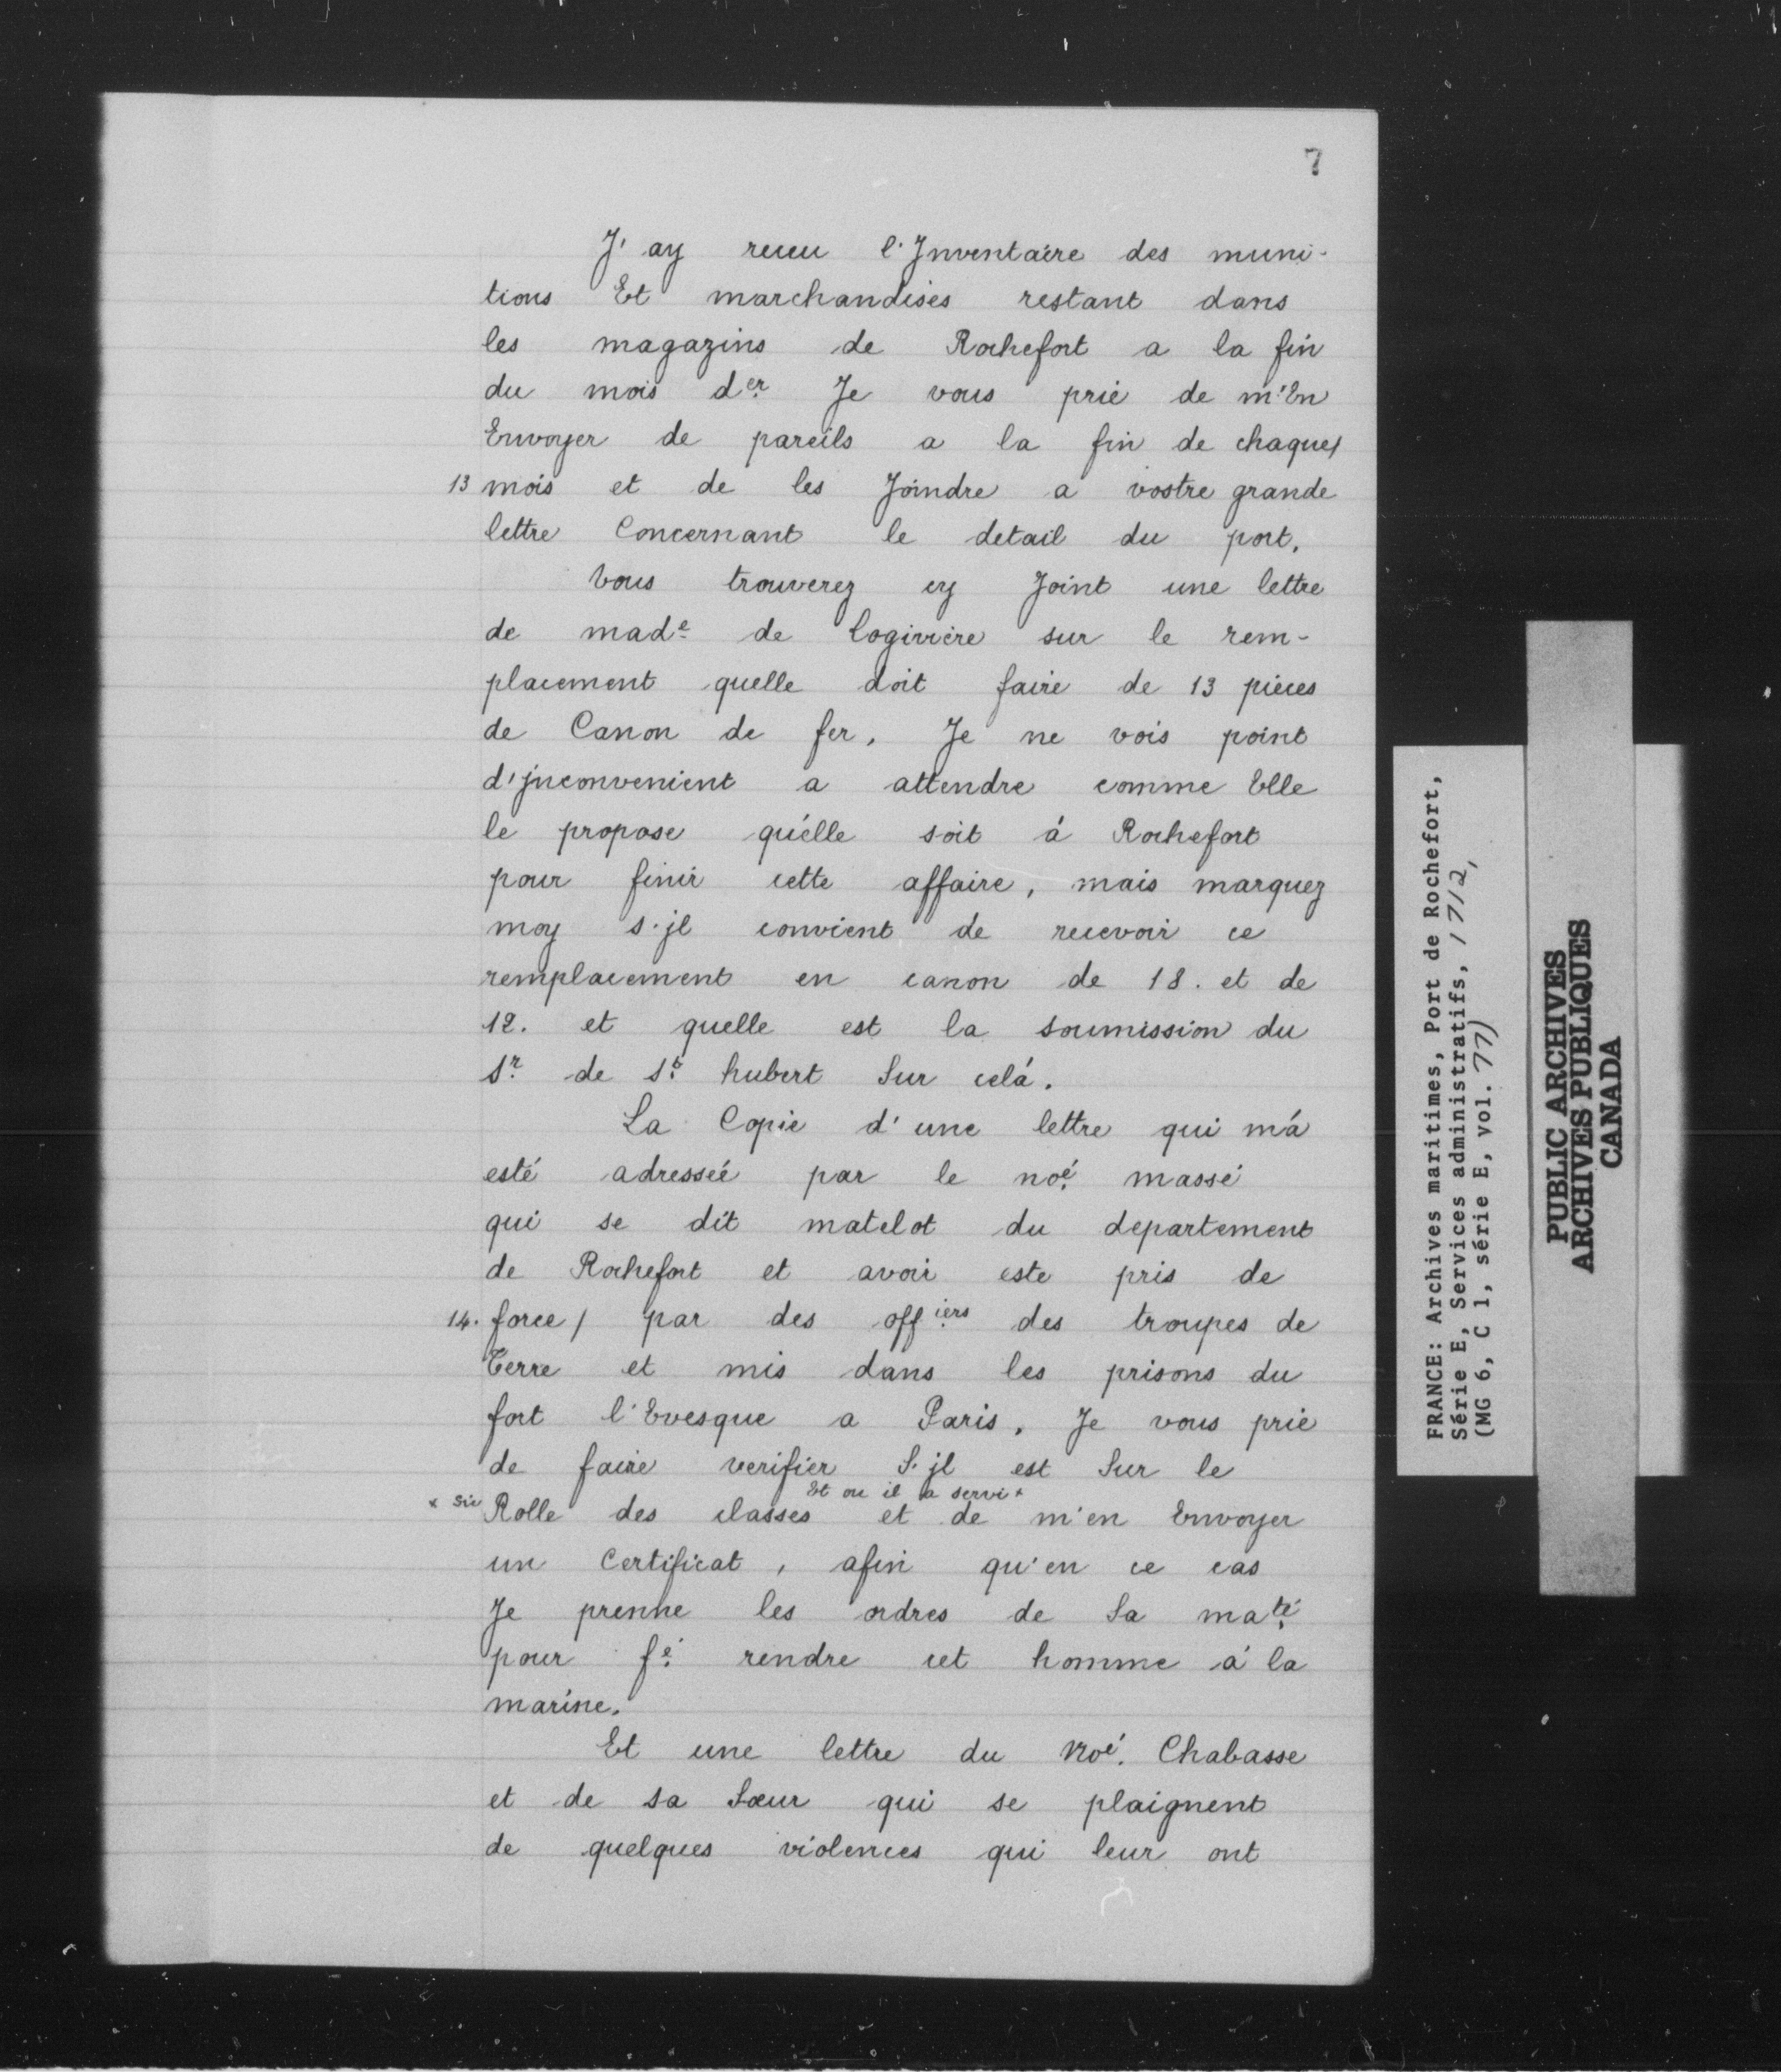 7
J'ay receu l'Inventaire des muni-
tions Et marchandises restant dans
les magazins de Rochefort a la fin
du mois der Je vous prie de m'En
Envoyer de pareils a la fin de chaque/
13 mois et de les Joindre a vostre grande
lettre Concernant le detail du port.
Vous trouverez cy Joint une lettre
de made de Logiviere sur le rem-
placement quelle doit faire de 13 pieces
de Canon de fer. Je ne vois point
d'jnconvenient a attendre comme Elle
le propose qu'elle soit á Rochefort
pour finir cette affaire, mais marquez
moy s'jl convient de recevoir ce
remplacement en canon de 18. et de
12. et quelle est la soumission du
Sr. de St. hubert Sur celá.
La Copie d'une lettre qui m'a
esté adresseé par le noé. massé
qui se dit matelot du departement
de Rochefort et avoir este pris de
14. force/ par des officiers des troupes de
Terre et mis dans les prisons du
fort l'Evesque a Paris. Je vous prie
de faire verifier S'jl est Sur le
Et ou il a servi x
x sic Rolle des classes et de m'en Envoyer
un Certificat, afin qu'en ce cas
Je prenne les ordres de Sa maté.
pour fé. rendre cet homme á la
marine.
Et une lettre du Noé. Chabasse
et de sa Soeur qui se plaignent
de quelques violences qui leur ont
FRANCE: Archives maritimes, Port de Rochefort,
Série E, Services administratifs, 1712,
(MG 6, C 1, série E, vol. 77)
PUBLIC ARCHIVES
ARCHIVES PUBLIQUES
CANADA